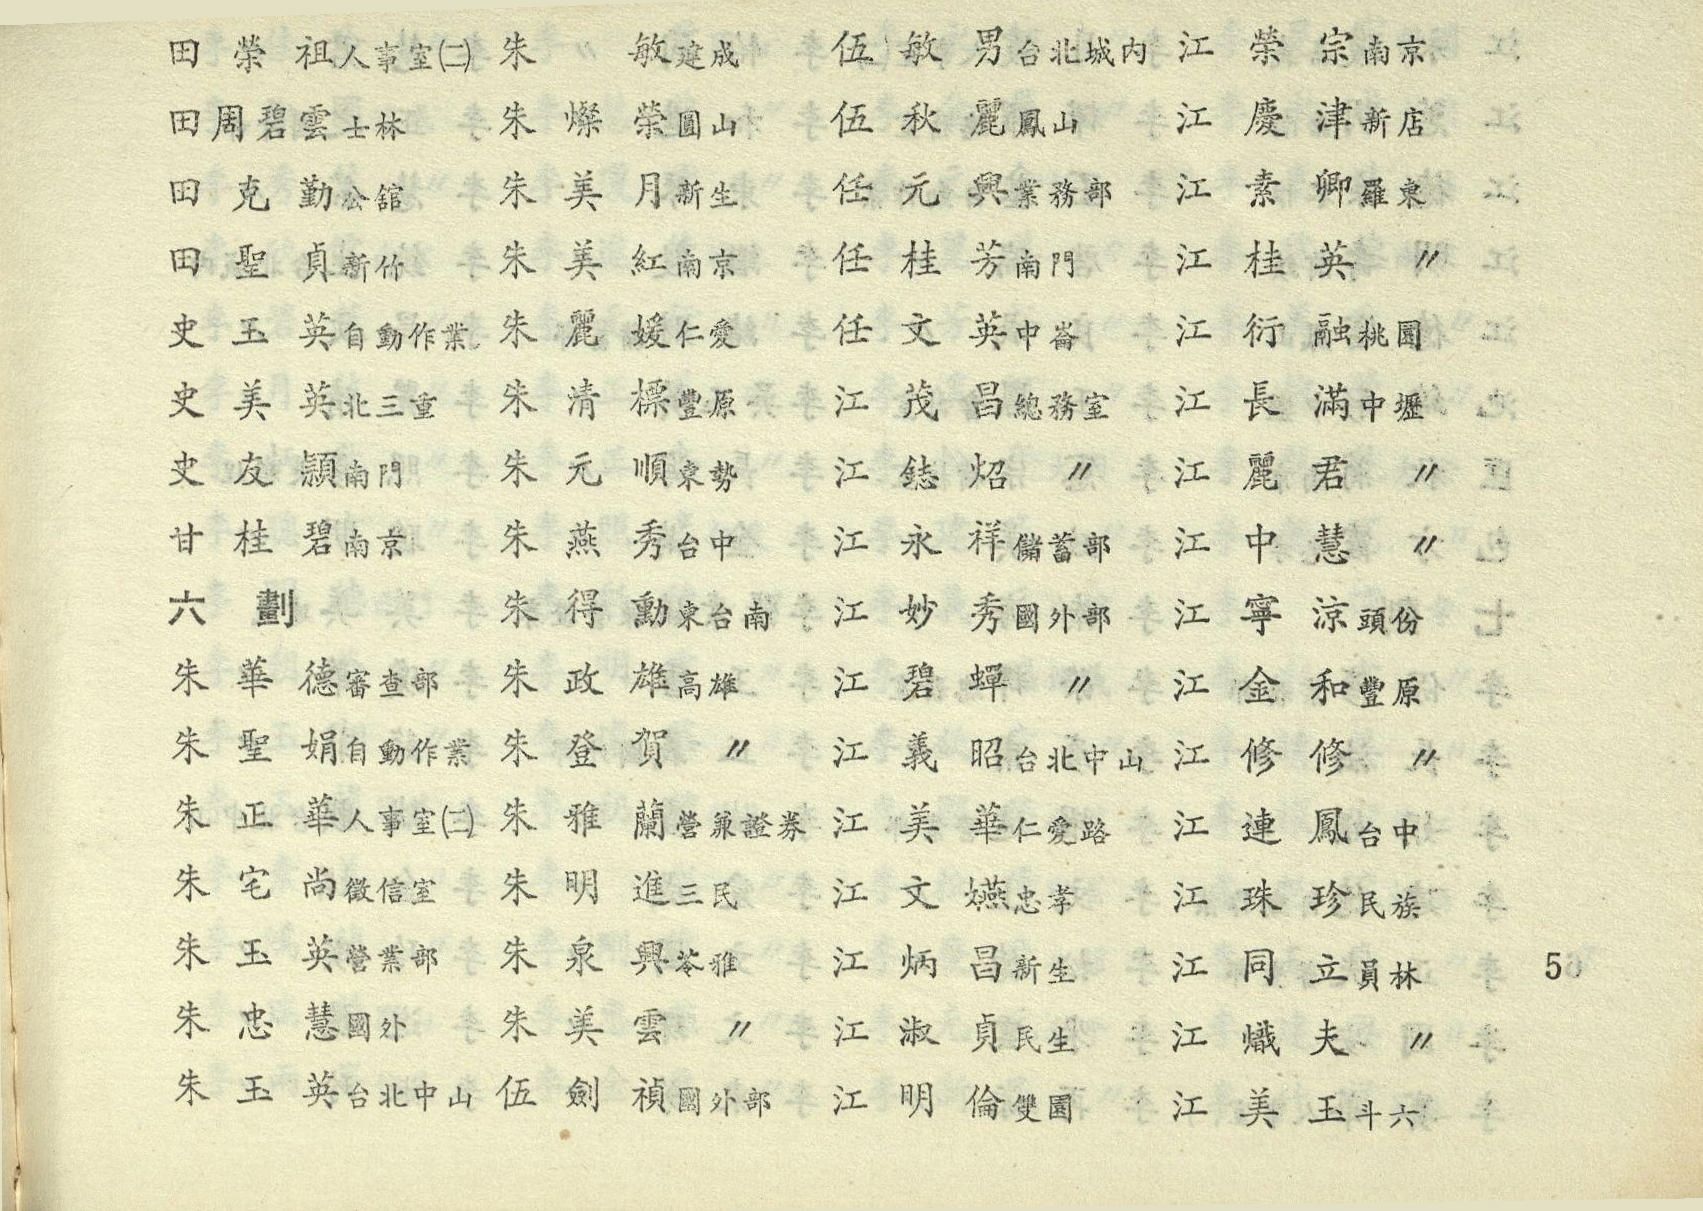 田榮祖人事室㈡
田周碧雲士林
田克勤公舘
田聖貞新竹
史玉英自動作業
史美英北三重
史友頴南門
甘桂碧南京
六劃
朱華德審查部
朱聖娟自動作業
朱正華人事室㈡
朱宅尚徵信室
朱玉英營業部
朱忠慧國外
朱玉英台北中山
朱敏建成
朱燦榮圓山
朱美月新生
朱美紅南京
朱麗媛仁愛
朱清標豐原
朱元順東勢
朱燕秀台中
朱得勳東台南
朱政雄高雄
朱登賀〃
朱雅蘭營兼證券
朱明進三民
朱泉興苓雅
朱美雲〃
伍劍禎國外部
伍敏男台北城内
伍秋麗鳳山
任元興業務部
任桂芳南門
任文英中崙
江茂昌總務室
江鋕炤〃
江永祥儲蓄部
江妙秀國外部
江碧蟬〃
江義昭台北中山
江美華仁愛路
江文嬿忠孝
江炳昌新生
江淑貞民生
江明倫雙園
江榮宗南京
江慶津新店
江素卿羅東
江桂英〃
江衍融桃園
江長滿中壢
江麗君〃
江中慧〃
江寧涼頭份
江金和豐原
江修修〃
江連鳳台中
江珠珍民族
江同立員林
江熾夫〃
江美玉斗六
5